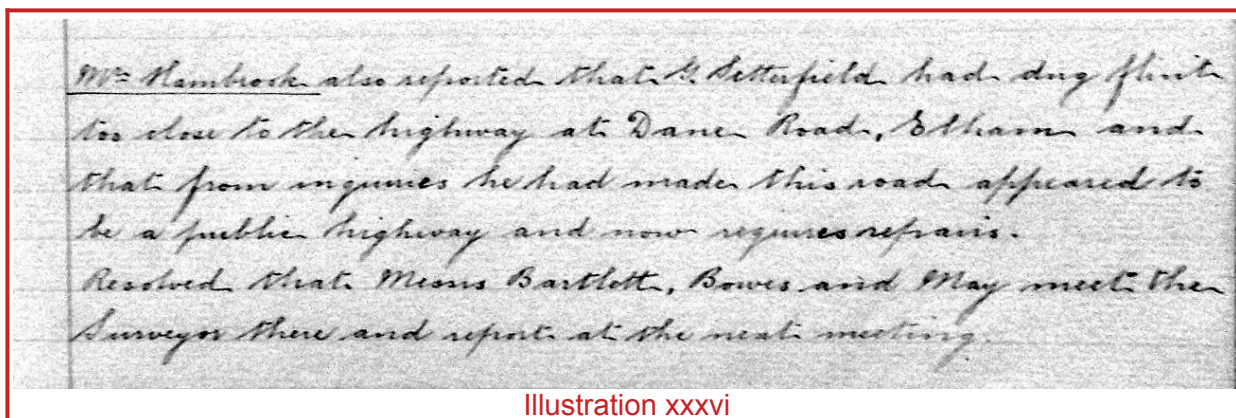 Mr Hambrook also reported that G. Setterfield had dug flint
too close to the highway at Dane Road, Elham and
that from inquiries he had made this road appeared to
be a public highway and now requires repairs.
Resolved that Messrs Bartlett, Bowes and May meet the
Surveyor there and report at the next meeting.
Illustration xxxvi